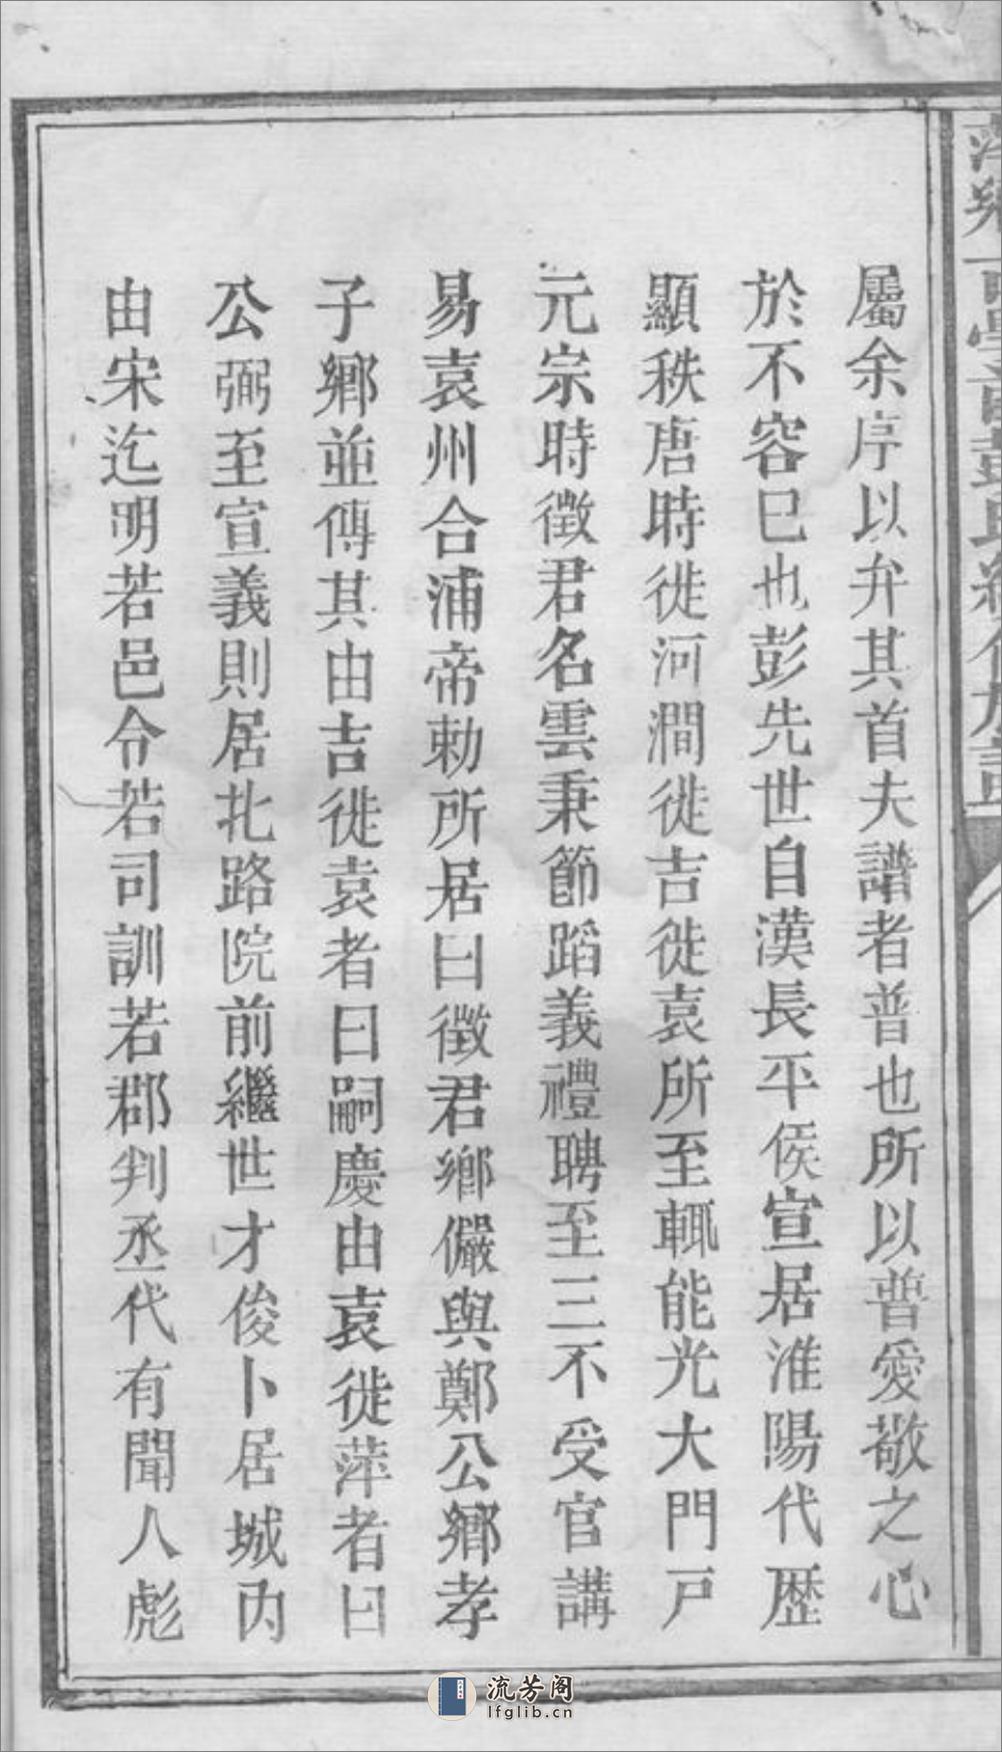 屬余序以弁其首夫譜者普也所以普愛敬之心
於不容巳也彭先世自漢長平侯宣居淮陽代歷
顯秩唐時徙河澗徙吉徙袁所至輒能光大門戸
元宗時徵君名雲秉節蹈義禮聘至三不受官講
易袁州合浦帝勅所居曰徵君鄉儼與鄭公鄉孝
子鄉並傳其由吉徙袁者曰嗣慶由袁徙萍者曰
公弼至宣義則居北路院前繼世才俊卜居城内
由宋迄明若邑令若司訓若郡判丞代有聞人彪
流芳阁
lfglib.cn